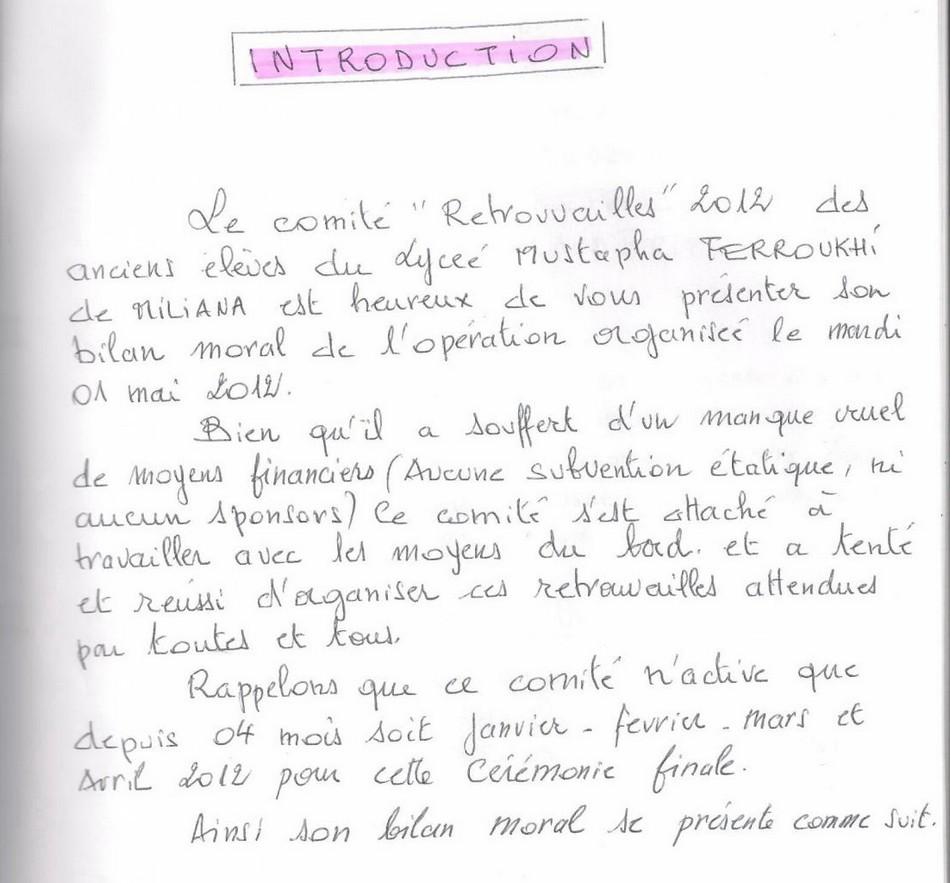 INTRODUCTION
Le comité "Retrouvailles" 2012 des
anciens élèves du Lyceé Mustapha FERROUKHI
de MILIANA est heureux de vous présenter son
bilan moral de l'opération organiseé le mardi
01 mai 2012.
Bien qu'il a souffert d'un manque cruel
de moyens financiers (Aucune subvention étatique, ni
aucun sponsors) Ce comité s'est attaché à
travailler avec les moyens du bord. et a tenté
et réussi d'organiser ces retrouvailles attendues
par toutes et tous.
Rappelons que ce comité n'active que
depuis 04 mois soit Janvier - fevrier - mars et
Avril 2012 pour cette Cérémonie finale.
Ainsi son bilan moral se présente comme suit.